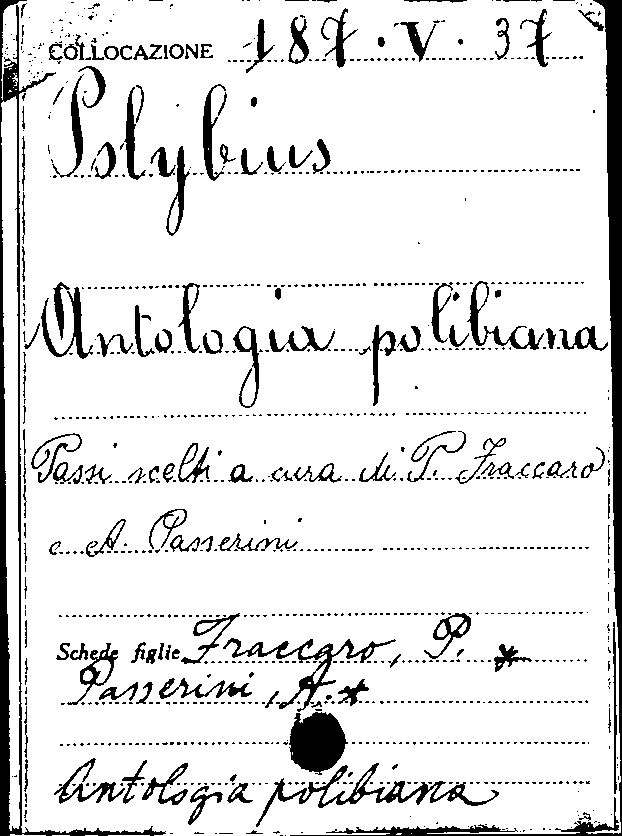 COLLOCAZIONE 187 · V · 37
Polybius
Antologia polibiana
Passi scelti a cura di P. Fraccaro
e A. Passerini
Schede figlie Fraccaro, P. *
Passerini, A. *
Antologia polibiana